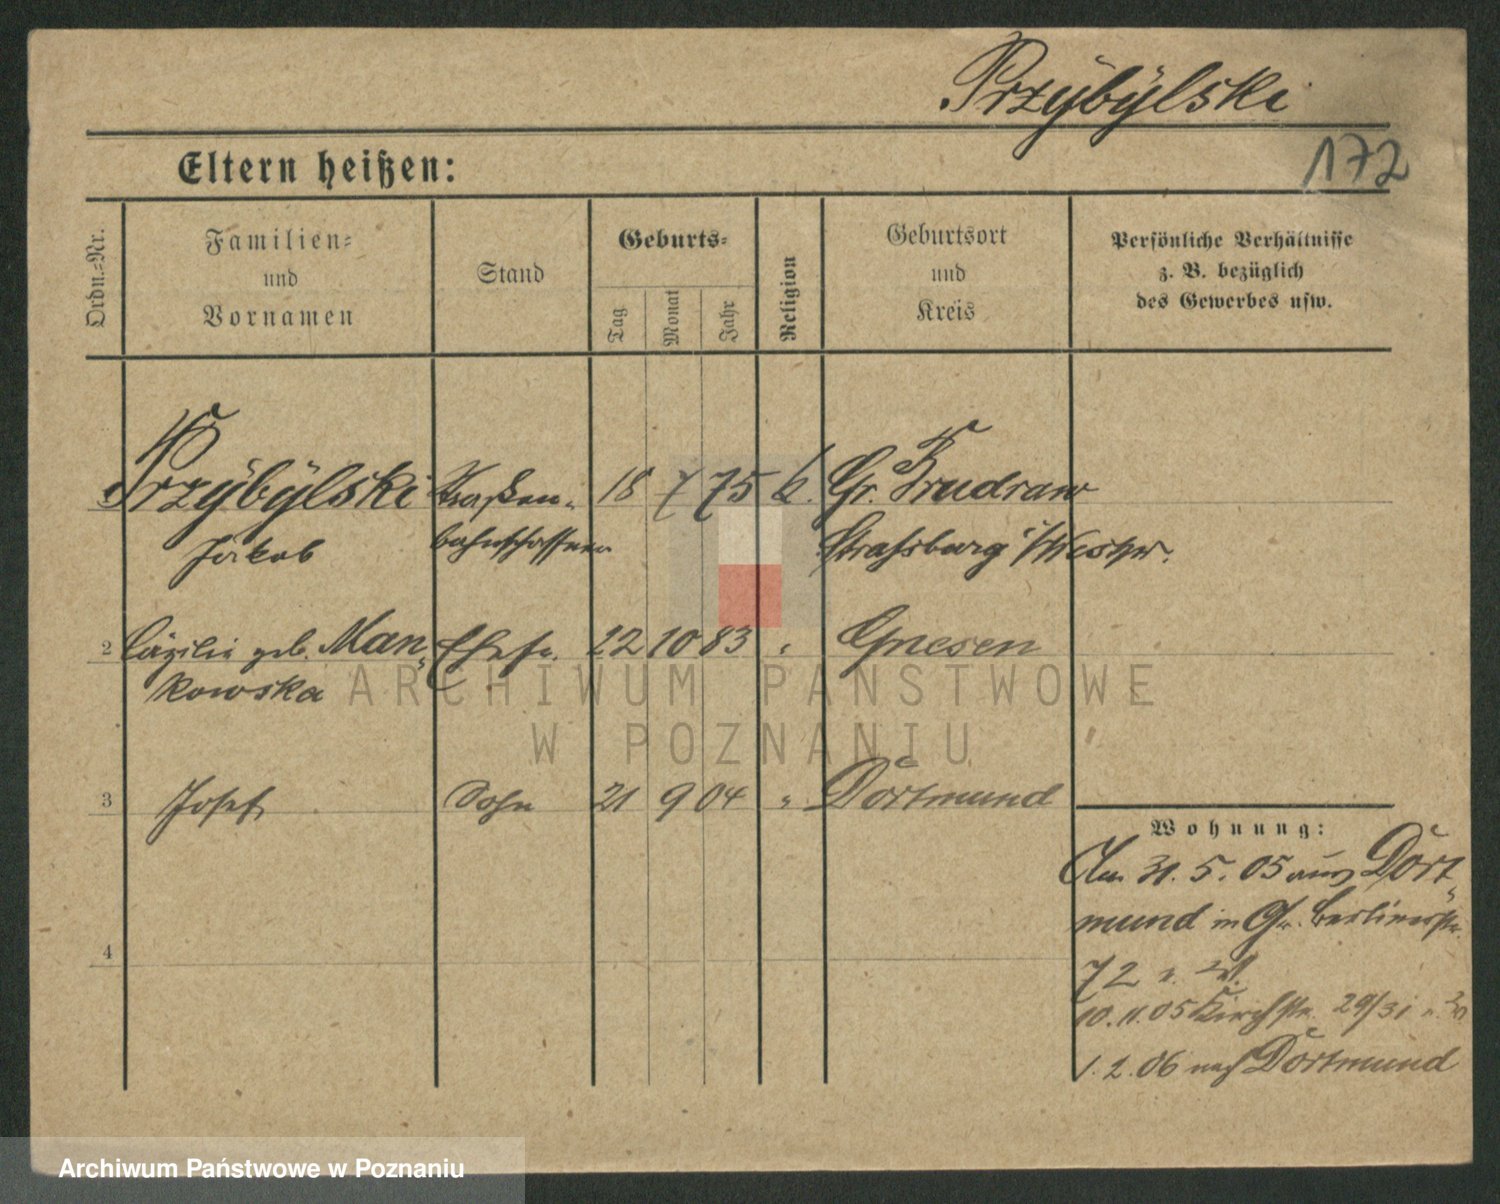 Przÿbÿlski
172
Eltern heißen:
Ordn.-Nr.
Familien-
und
Vornamen
Stand
Geburts-
Tag
Monat
Jahr
Religion
Geburtsort
und
Kreis
Persönliche Verhältnisse
z. B. bezüglich
des Gewerbes usw.
Przÿbÿlski Straßen- 18 7 75 k. Gr.
Jakob bahnschaffner Strassburg i/Westpr.
2 Cäzilie geb. Man- Ehefr. 22 10 83 " Gnesen
kowska
3 Josef Sohn 21 9 04 " Dortmund
Wohnung:
Am 31. 5. 05 aus Dort-
mund in Gr. Berlinerstr.
72
10. 11. 05 Kirchstr. 29/31
1. 2. 06 nach Dortmund
4
ARCHIWUM PAŃSTWOWE
W POZNANIU
Archiwum Państwowe w Poznaniu